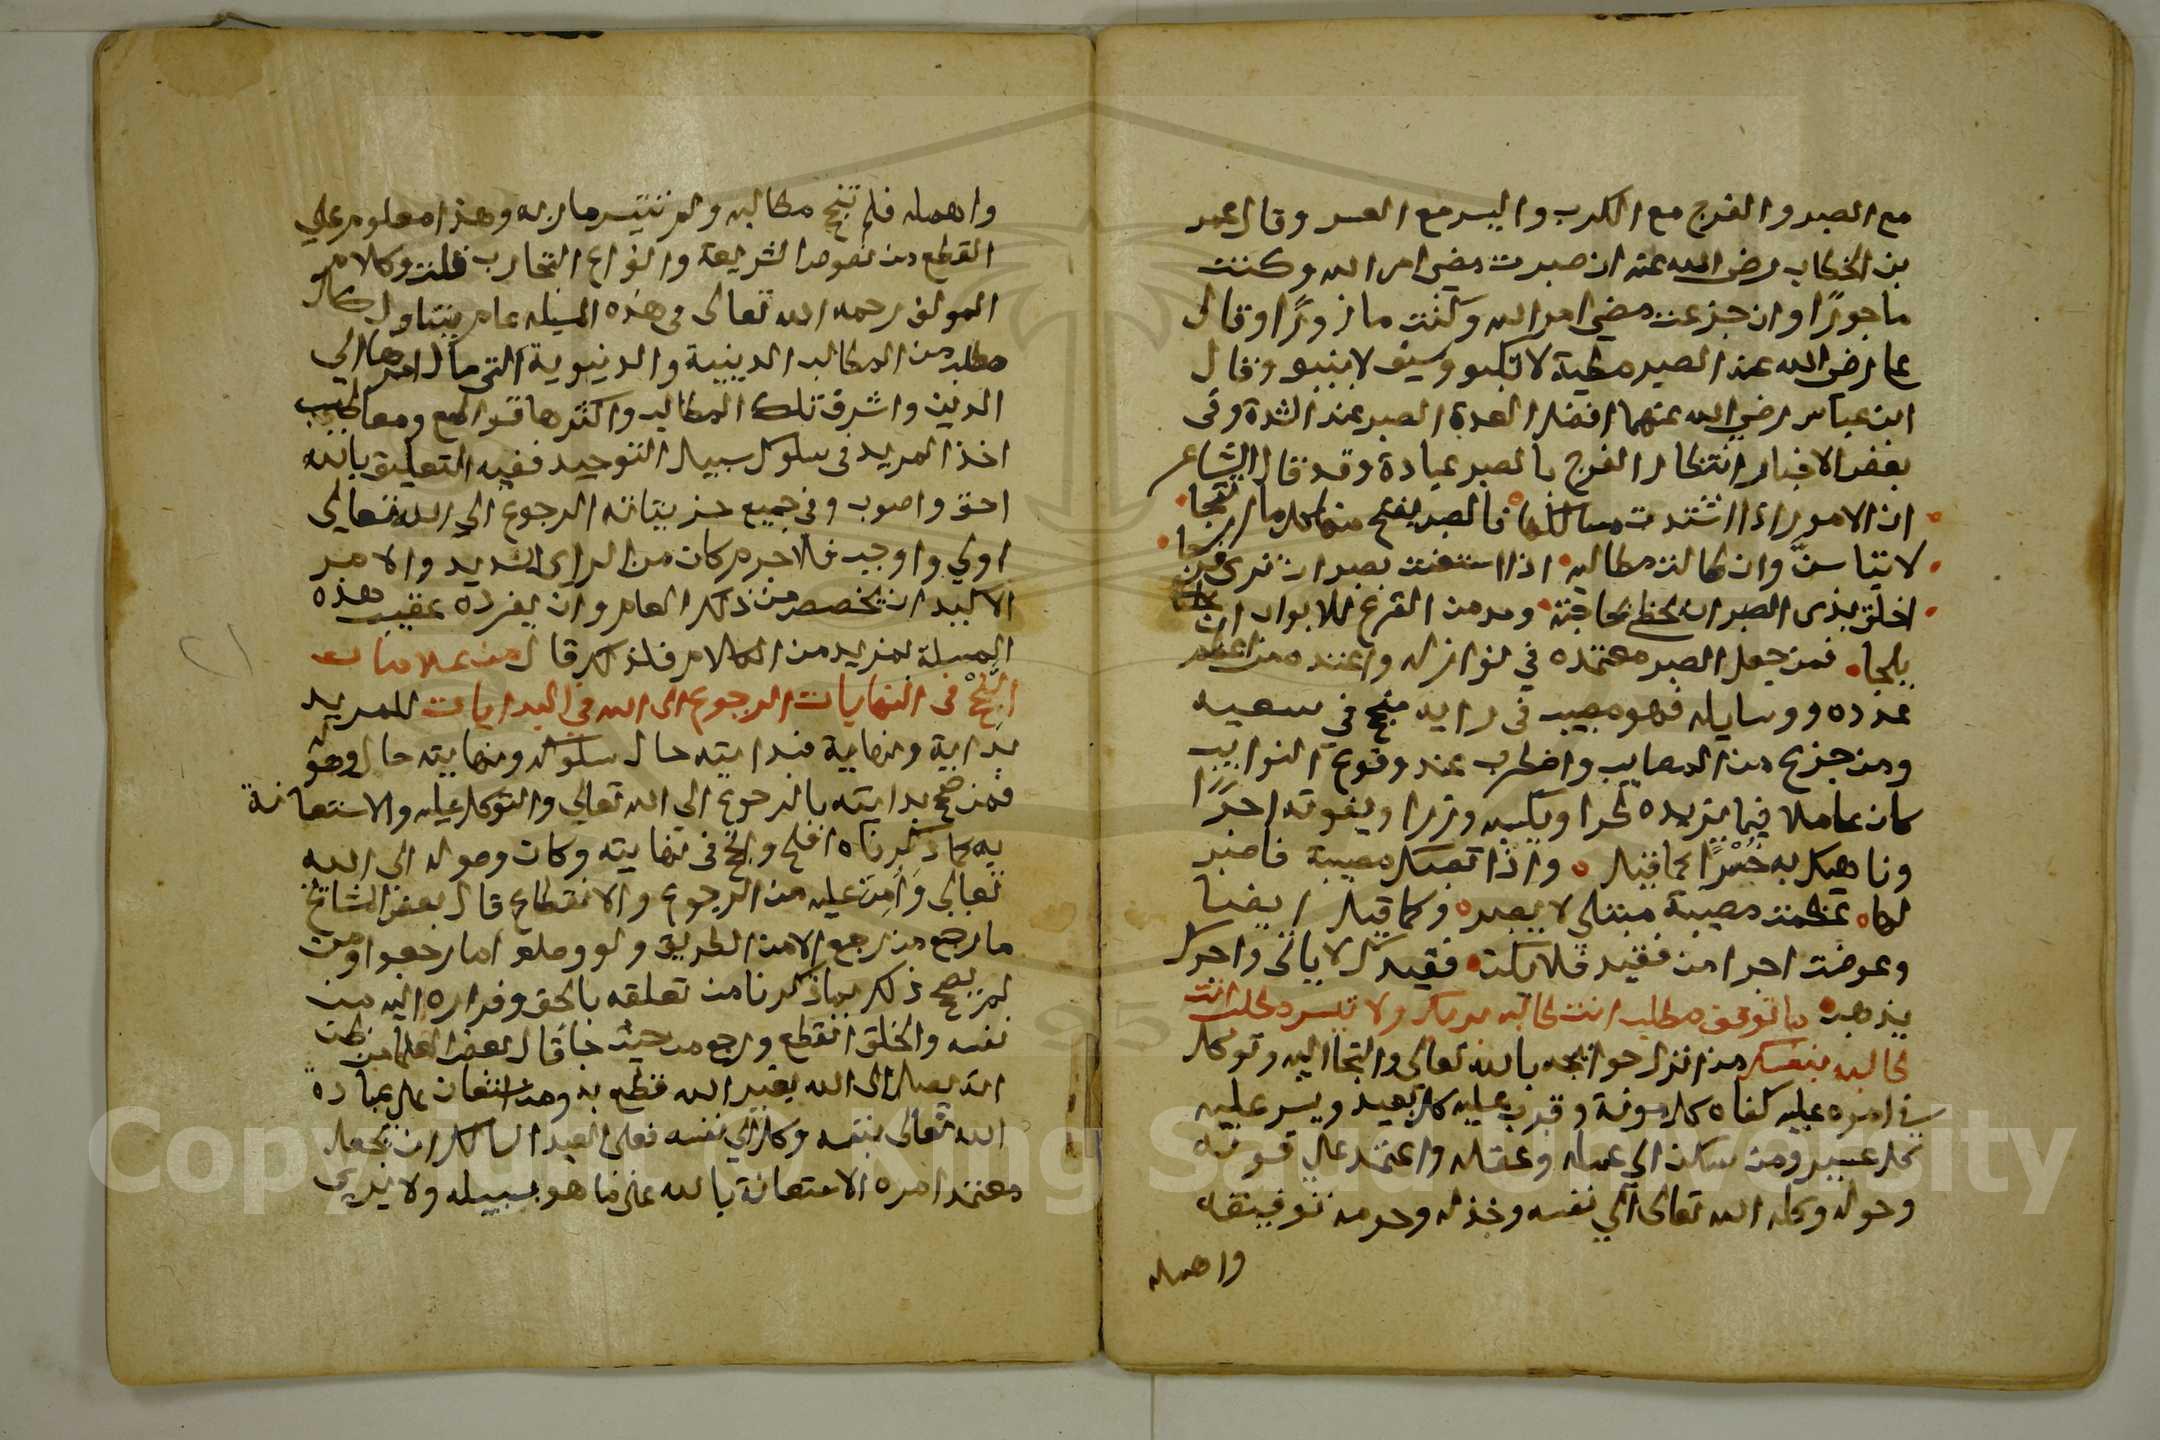 مع الصبر والفرج مع الكرب واليسر مع العسر وقال عمر
بن الخطاب رضي الله عنه ان صبرت مضي امر الله وكنت
ماجورًا وان جزعت مضي امر الله وكنت مازورًا وقال
علي رضي الله عنه الصبر مطية لا تكبو وسيف لا ينبو وقال
ابن عباس رضي الله عنهما افضل العدة الصبر عند الشدة وفي
بعض الاخبار انتظار الفرج بالصبر عبادة وقد قال الشاعر
ان الامور اذا اشتدت مسالكها فالصبر يفتح منها كل ما ارتتجا
لا تياسنَّ وان طالت مطالبه اذا استعنت بصبر ان تري فرجا
اخلق بذي الصبر ان يحظي بحاجته ومدمن القرع للابواب ان
يلجا فمن جعل الصبر معتمده في نوازله واعتده من اعظم
عدده ووسايله فهو مصيب في رايه منجح في سعيه
ومن جزع من المصايب واضطرب عند وقوع النوايب
كان عاملا فيما يزيده ضرا ويكسبه وزرا ويفوته اجرًا
وناهيك به خُسْرًا كما قيل واذا تصبك مصيبة فاصبر
لها عظمت مصيبة مبتلي لا يصبر وكما قيل ايضا
وعوضت اجرا من فقيد فلا يكن فقيدك لا ياتي واجرك
يذهب ما توقف مطلب انت طالبه بربك ولا تيسر مطلب انت
طالبه بنفسك من انزل حوايجه بالله تعالى والتجا اليه وتوكل
في امره عليه كفاه كل مونة وقرب عليه كل بعيد ويسر عليه
كل عسير ومن سكن الي عمله وعقله واعتمد علي قوته
وحوله وكله الله تعالى الي نفسه وخذله وحرمه توفيقه
واهمله
واهمله فلم تنجح مطالبه ولم تتيسر ماربه وهذا معلوم علي
القطع من نصوص الشريعة وانواع التجارب قلت وكلام
المولف رحمه الله تعالى في هذه المسيلة عام يتناول كل
مطلب من المطالب الدينية والدنيوية التي مال امرها الي
الدين واشرف تلك المطالب واكثرها قواطع ومعاطب
اخذ المريد في سلوك سبيل التوحيد ففيه التعليق بالله
احق واصوب وفي جميع جزيياته الرجوع الي الله تعالي
اولي واوجب فلا جرم كان من الراي السديد والامر
الاكيد ان يخصص من ذلك العام وان يفرده عقيب هذه
المسيلة بمزيد من الكلام فلذلك قال من علامات
النُّجْح في النهايات الرجوع الى الله في البدايات للمريد
بداية ونهاية فبدايته حال سلوكه ونهايته حال وصوله
فمن صحح بدايته بالرجوع الى الله تعالي والتوكل عليه والاستعانة
به كما ذكرناه افلح وانجح في نهايته وكان وصوله الى الله
تعالي وَاَمِنَ عليه من الرجوع والانقطاع قال بعض المشايخ
ما رجع من رجع الا من الطريق ولو وصلوا ما رجعوا ومن
لم يصحح ذلك بما ذكرنا من تعلقه بالحق وفراره اليه من
نفسه والخلق انقطع ورجع من حيث جا قال بعض العلما من ظن
انه يصل الى الله بغير الله قطع به ومن استعان على عبادة
الله تعالى بنفسه وكل الي نفسه فعلى العبد السالك ان يجعل
معتمد امره الاستعانة بالله على ما هو بسبيله ولا يري
Copyright © King Saud University